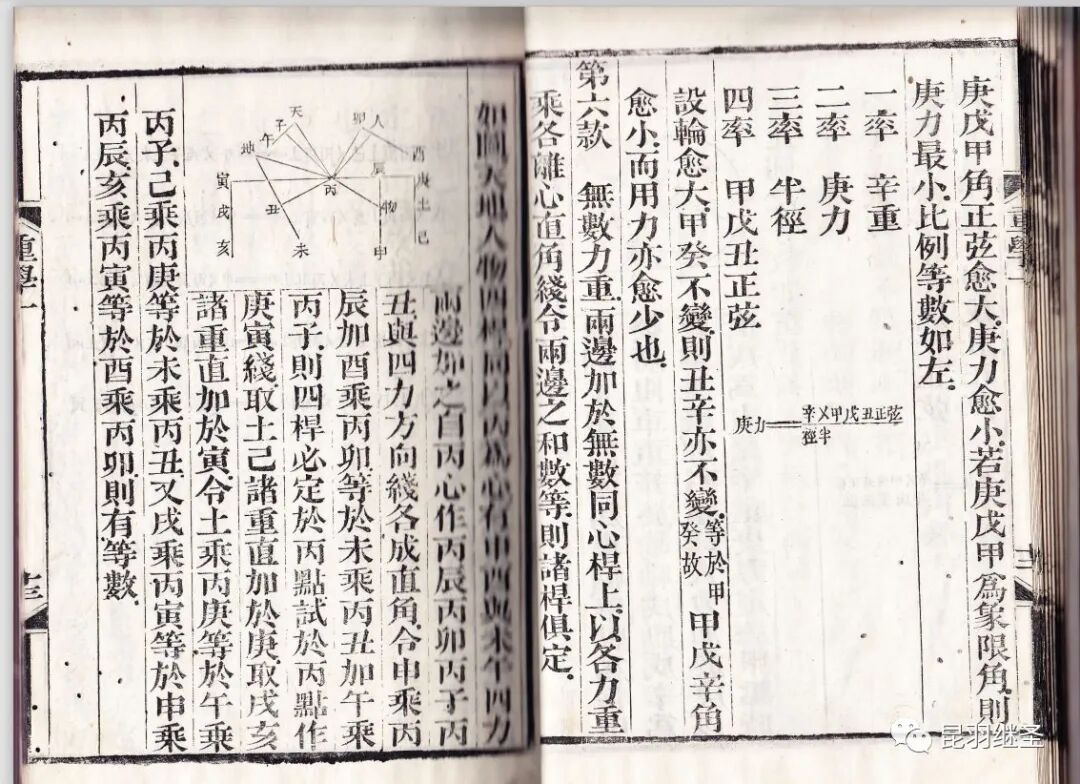 庚戊甲角正弦愈大庚力愈小若庚戊甲爲象限角則
庚力最小比例等數如左
一率　辛重
二率　庚力
三率　半徑
四率　甲戊丑正弦
庚力＝辛乂甲戊丑正弦
徑半
設輪愈大甲癸不變則丑辛亦不變等於甲癸故甲戊辛角
愈小而用力亦愈少也
第六款　無數力重兩邊加於無數同心桿上以各力重
乘各離心直角綫令兩邊之和數等則諸桿俱定
如圖天地人物四桿同以丙爲心有申酉與未午四力
兩邊加之自丙心作丙辰丙卯丙子丙
丑與四力方向綫各成直角令申乘丙
辰加酉乘丙卯等於未乘丙丑加午乘
丙子則四桿必定於丙點試於丙點作
庚寅綫取土己諸重直加於庚取戌亥
諸重直加於寅令土乘丙庚等於午乘
丙子己乘丙庚等於未乘丙丑又戌乘丙寅等於申乘
丙辰亥乘丙寅等於酉乘丙卯則有等數
天
子
午
地
寅
戌
亥
丑
未
丙
卯
人
辰
物
申
酉
庚
土
己
重學一
十三
昆羽继圣